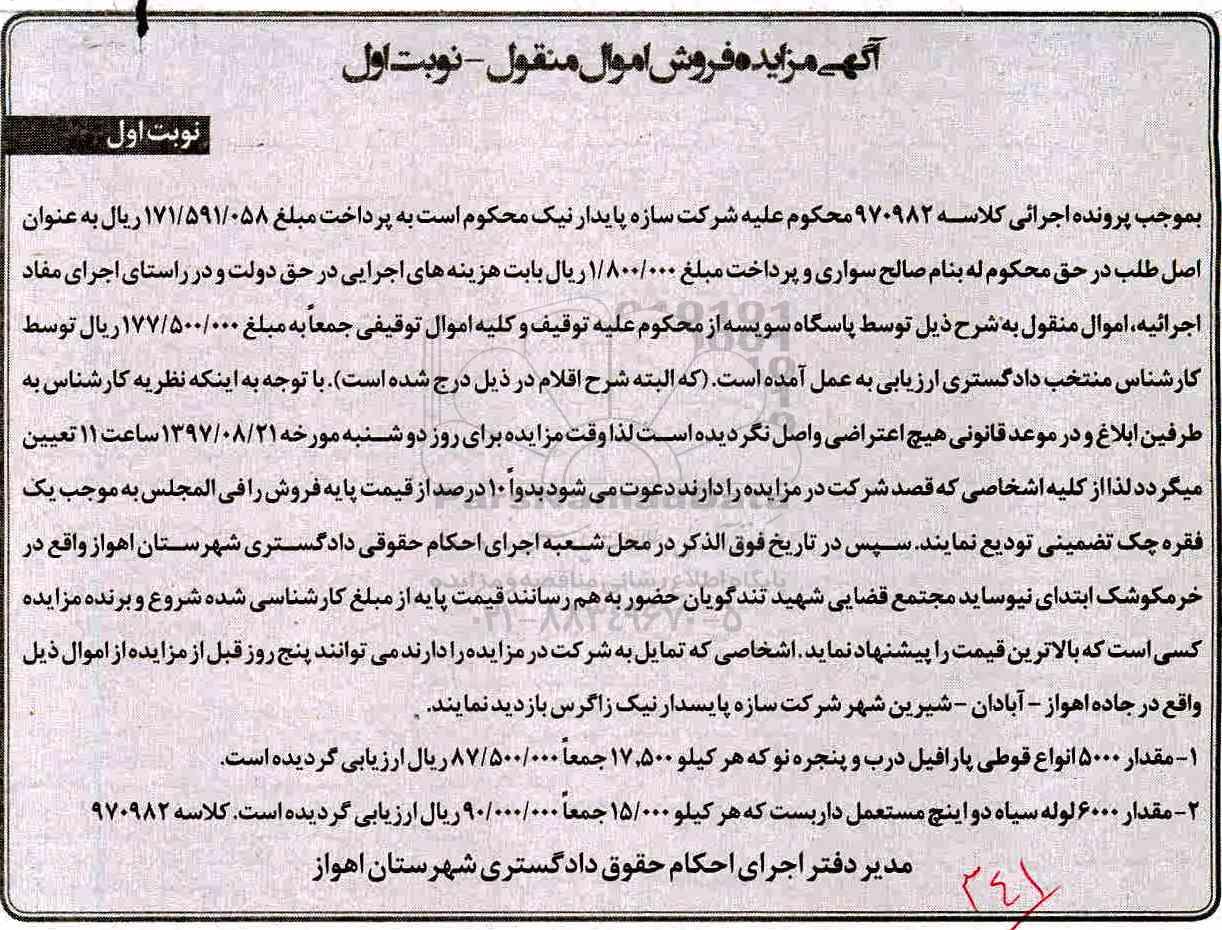 آگهی مزایده فروش اموال منقول - نوبت اول
نوبت اول
بموجب پرونده اجرائی کلاسه ۹۷۰۹۸۲ محکوم علیه شرکت سازه پایدار نیک محکوم است به پرداخت مبلغ ۱۷۱/۵۹۱/۰۵۸ ریال به عنوان
اصل طلب در حق محکوم له بنام صالح سواری و پرداخت مبلغ ۱/۸۰۰/۰۰۰ ریال بابت هزینه های اجرایی در حق دولت و در راستای اجرای مفاد
اجرائیه، اموال منقول به شرح ذیل توسط پاسگاه سویسه از محکوم علیه توقیف و کلیه اموال توقیفی جمعاً به مبلغ ۱۷۷/۵۰۰/۰۰۰ ریال توسط
کارشناس منتخب دادگستری ارزیابی به عمل آمده است. (که البته شرح اقلام در ذیل درج شده است). با توجه به اینکه نظریه کارشناس به
طرفین ابلاغ و در موعد قانونی هیچ اعتراضی واصل نگردیده است لذا وقت مزایده برای روز دوشنبه مورخه ۱۳۹۷/۰۸/۲۱ ساعت ۱۱ تعیین
میگردد لذا از کلیه اشخاصی که قصد شرکت در مزایده را دارند دعوت می شود بدواً ۱۰ درصد از قیمت پایه فروش را فی المجلس به موجب یک
فقره چک تضمینی تودیع نمایند. سپس در تاریخ فوق الذکر در محل شعبه اجرای احکام حقوقی دادگستری شهرستان اهواز واقع در
خرمکوشک ابتدای نیوساید مجتمع قضایی شهید تندگویان حضور به هم رسانند قیمت پایه از مبلغ کارشناسی شده شروع و برنده مزایده
کسی است که بالاترین قیمت را پیشنهاد نماید. اشخاصی که تمایل به شرکت در مزایده را دارند می توانند پنج روز قبل از مزایده از اموال ذیل
واقع در جاده اهواز - آبادان - شیرین شهر شرکت سازه پایسدار نیک زاگرس بازدید نمایند.
۱- مقدار ۵۰۰۰ انواع قوطی پارافیل درب و پنجره نو که هر کیلو ۱۷,۵۰۰ جمعاً ۸۷/۵۰۰/۰۰۰ ریال ارزیابی گردیده است.
۲- مقدار ۶۰۰۰ لوله سیاه دو اینچ مستعمل داربست که هر کیلو ۱۵/۰۰۰ جمعاً ۹۰/۰۰۰/۰۰۰ ریال ارزیابی گردیده است. کلاسه ۹۷۰۹۸۲
مدیر دفتر اجرای احکام حقوق دادگستری شهرستان اهواز
ParsNamadData
پایگاه اطلاع رسانی مناقصه و مزایده
۰۲۱-۸۸۳۴۹۶۷۰-۵